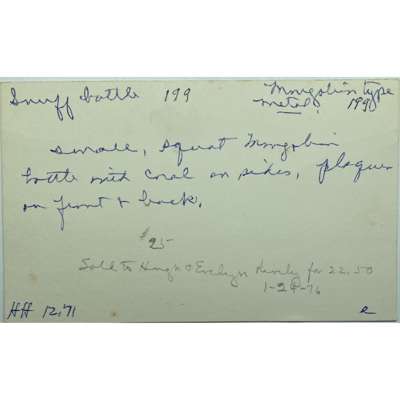 Snuff bottle 199 Mongolian type
metal. 199
small, squat Mongolian
bottle with coral on sides, plaques
on front & back.
$25-
Sold to Hugh & Evelyn for 22.50
1-28-76
HH 12.71 e